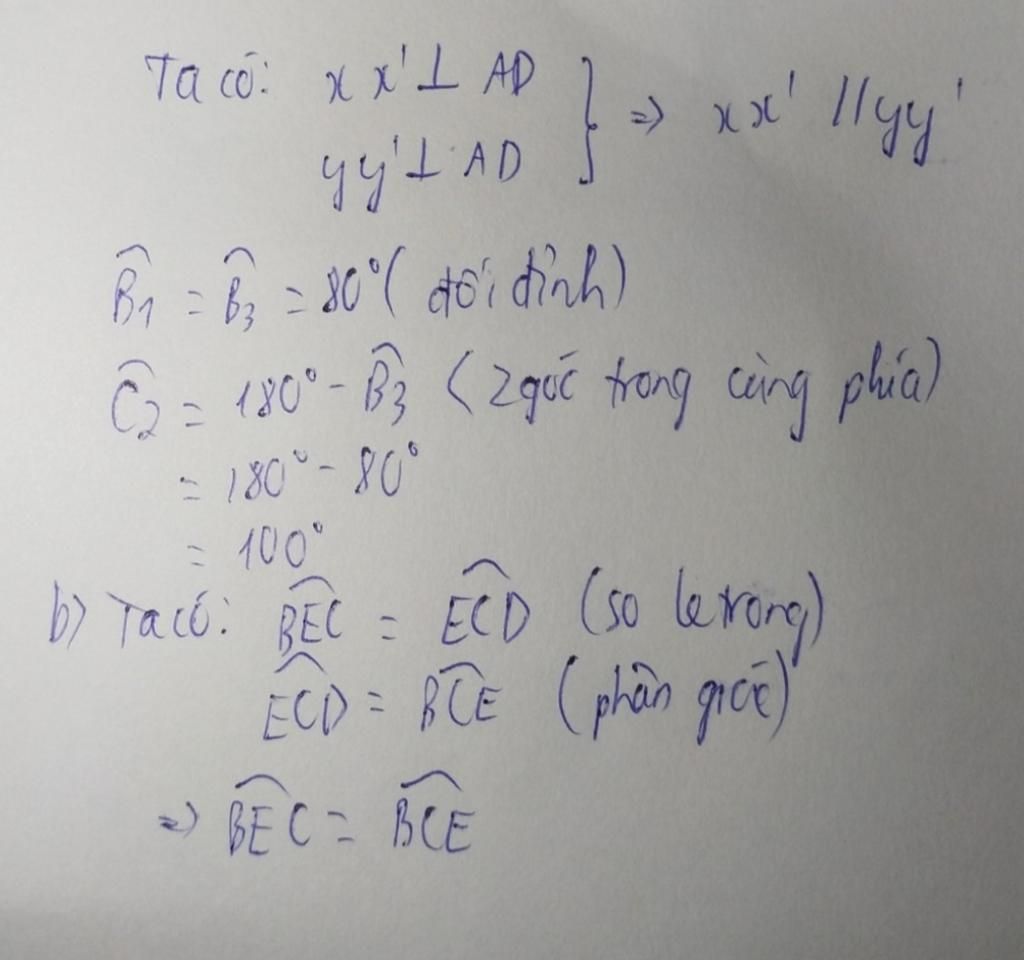 Ta có: xx' ⊥ AD } => xx' // yy'
yy' ⊥ AD
B̂1 = B̂3 = 80° (đối đỉnh)
Ĉ2 = 180° - B̂3 (2 góc trong cùng phía)
= 180° - 80°
= 100°
b) Ta có: B͡EC = E͡CD (so le trong)
E͡CD = B͡CE (phân giác)
=> B͡EC = B͡CE